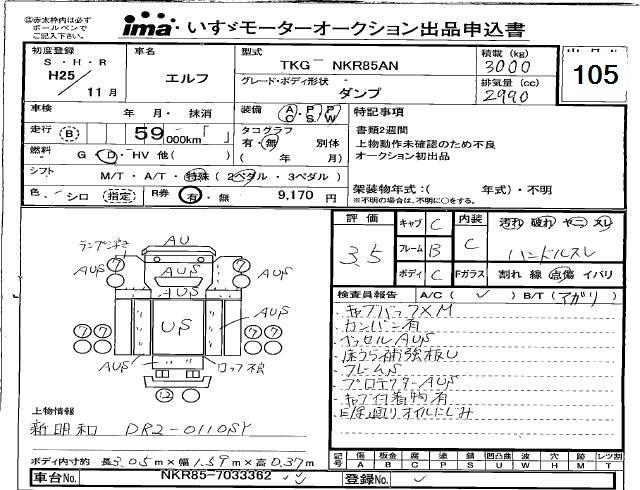 ◎赤太枠内は必ず
ボールペンで
ご記入下さい。
ima いすゞモーターオークション出品申込書
初度登録 S・H・R
H25/11月
車名
エルフ
型式
TKG - NKR85AN
グレード・ボディ形状
ダンプ
積載 (kg)
3000
排気量 (cc)
2990
105
車検 年・月・抹消
走行 (B) 59,000km「 」
燃料 G・D・HV 他( )
装備 AC・PS・PW
タコグラフ
有・無 別体
( 年 月)
シフト M/T・A/T・特殊 (2ペダル・3ペダル)
色 シロ (指定) R券 有・無 9,170 円
特記事項
書類2週間
上物動作未確認のため不良
オークション初出品
架装物年式:( 年式)・不明
※不明の場合は、不明に○をする。
評価
3.5
キャブ C
フレーム B
ボディ C
内装 C
Fガラス
汚れ 破れ ヤニ スレ
ハンドルスレ
割れ 線 点傷 イバリ
検査員報告 A/C( ✓ ) B/T(アガリ)
・キャブバックXM
・カンバン有
・ベッセルAUS
・床うら補強板U
・フレームS
・プロテクターAUS
・キャブ付着物有
・オイルにじみ
ランプシミ
AU
AUS
AUS
AUS
AUS
AUS
US
AUS
AUS
AUS
ロック不良
⑦
⑦
⑦
⑦
⑦
⑦
⑦
⑦
⑫
上物情報
新明和 DR2-0110SY
ボディ内寸約 長3.05m×幅1.59m×高0.37m
車台No. NKR85-7033362
登録No.
記号 傷 A 板金 B 腐 C 塗 P 錆 S 凹凸曲 U 波 W 穴 H 跡 M レツ割 T